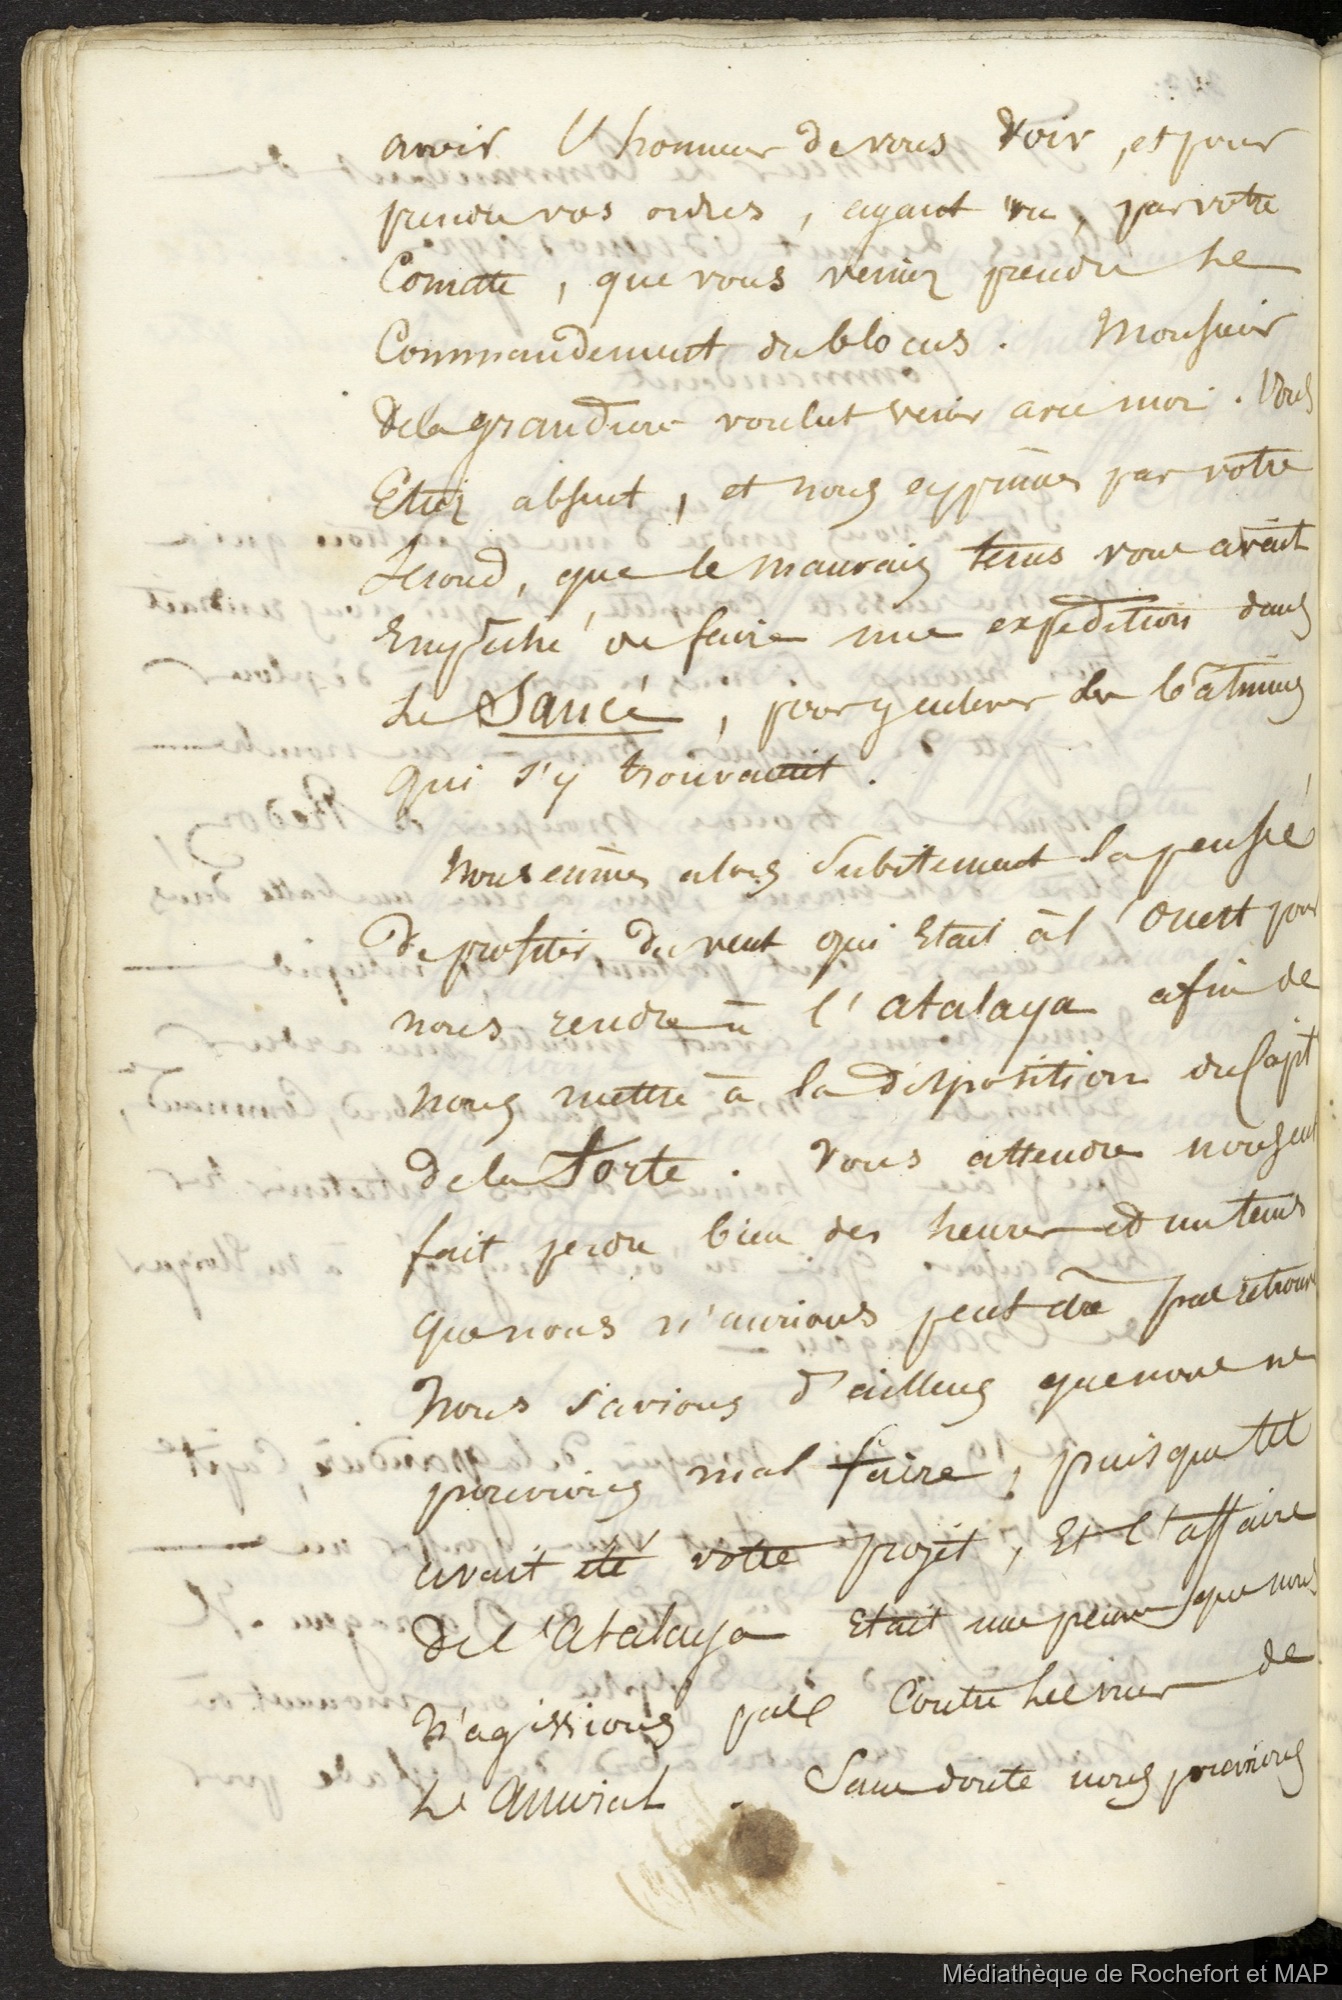 avoir l'honneur de vous voir, et pour
prendre vos ordres, ayant vu, par votre
Comette, que vous veniez prendre le
Commandement du blocus. Monsieur
De la grandiere voulut venir avec moi. Vous
Etiez absent, et nous apprimes par votre
Second, que le mauvais tems vous avait
Empêché de faire une expedition dans
le Sauce, pour y enlever des bâtimens
qui s'y trouvaient.
Nous eûmes alors subitement la pensée
De profiter du vent qui Etait à l'Ouest pour
nous rendre à l'atalaya afin de
nous mettre à la disposition du Capt
De la Forte. Vous attendre nous eut
fait perdre bien des heures et un tems
que nous n'aurions peut être pas retrouvé
Nous savions d'ailleurs que nous ne
pouvions mal faire, puisque tel
avait été votre projet, Et l'affaire
De l'atalaya Etait une preuve que nous
N'agissions pas Contre les vues de
Le Amiral. Sans doute nous pouvions
Médiathèque de Rochefort et MAP